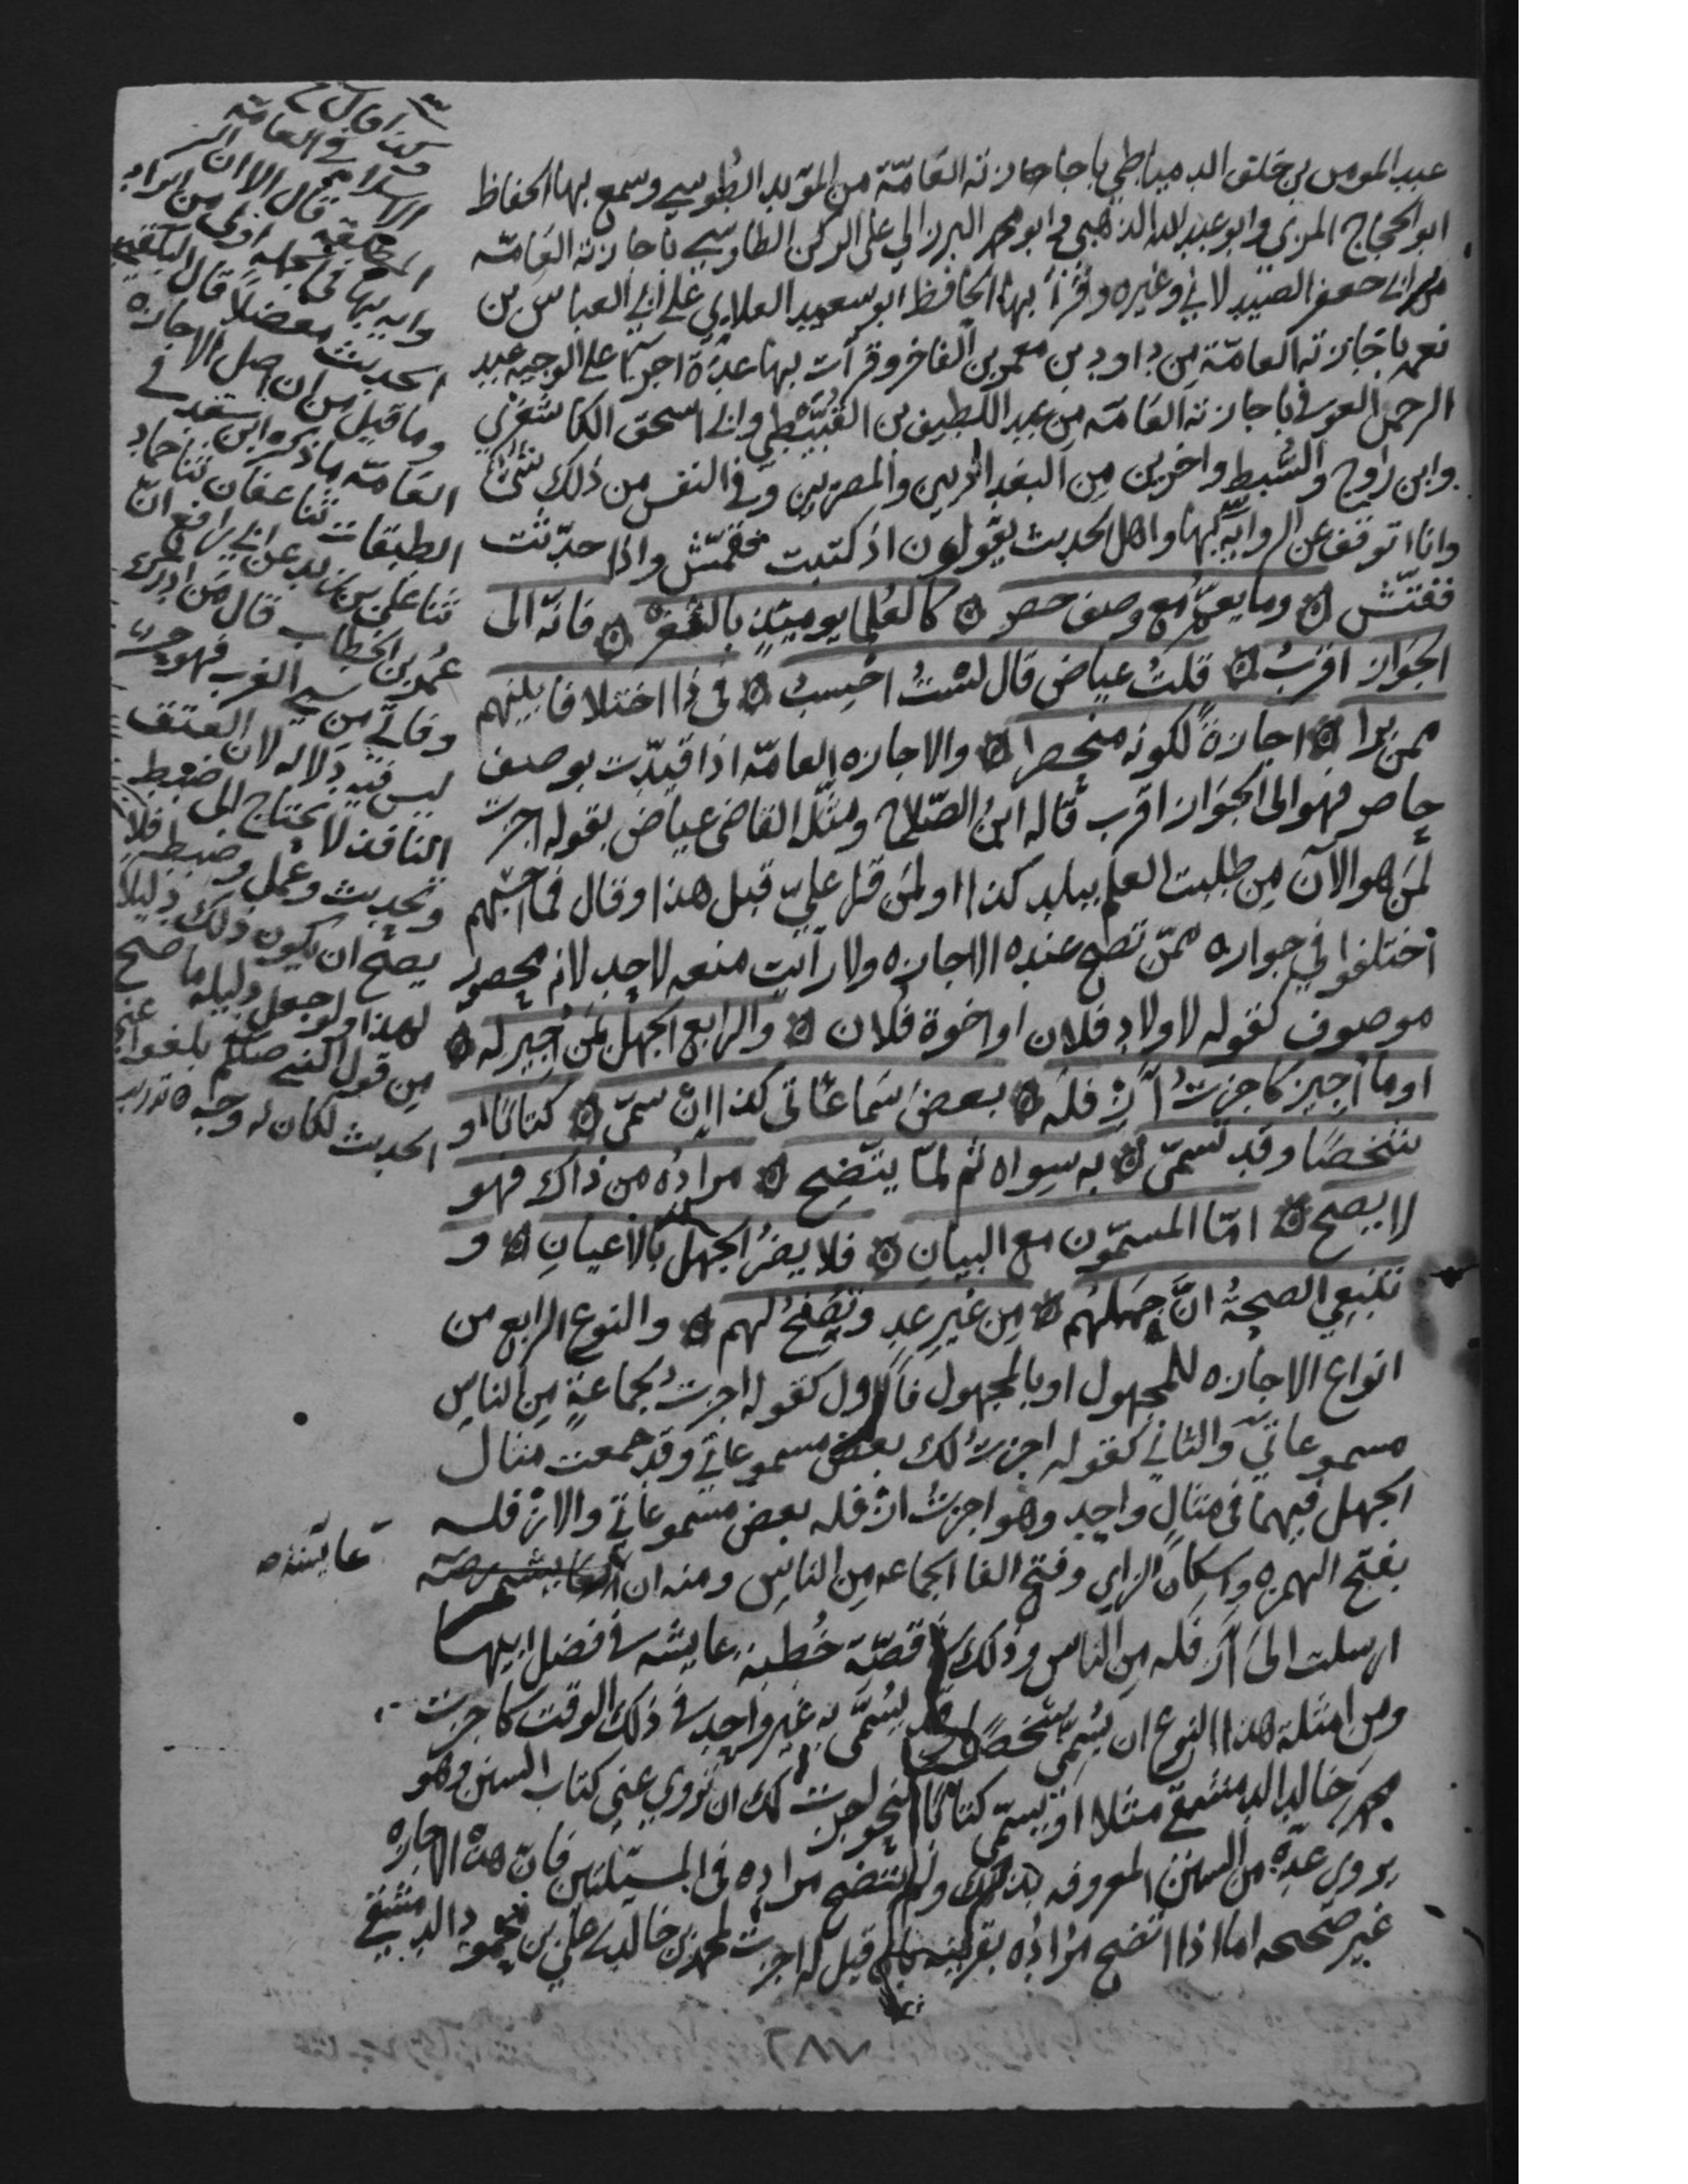 عبد المومن بن خلف الدمياطي باجازته العامّة من المؤيد الطوسي وسمع بها الحفاظ
ابو الحجاج المزي وابو عبد الله الذهبي وابو محمد البرزالي على الركن الطاوسي باجازته العامّة
من ابي جعفر الصيدلاني وغيره وقرأ بها الحافظ ابو سعيد العلايي على ابي العباس بن
نعمه باجازته العامّة من داود بن معمر بن الفاخر وقرأت بها عدّة اجزآء على الوجيه عبد
الرحمن العوفي باجازته العامّه من عبد اللطيف بن القبّيطي وابي اسحق الكاشغري
وابن رَواج والسّبط واخرين من البغداديين والمصريين وفي النفس من ذلك شئ
وانا اتوقف عن الرواية بها واهل الحديث يقولون اذا كتبت فقمّش واذا حدّثت
ففتّش ۞ وما يعمّ مع وصف حصر ۞ كالعلما يوميئذٍ بالثغر ۞ فانّه الى
الجواز اقربُ ۞ قلتُ عياض قال لستُ احْسِبُ ۞ في ذا اختلافا بينهم
ممن يرا ۞ اجازةً لكونه منحصرا ۞ والاجازه العامّه اذا قيدّت بوصف
حاصر فهو الى الجواز اقرب قاله ابنُ الصّلاح ومثّله القاضي عياض بقوله اجزت
لمن هو الآن مِن طلبة العلم ببلد كذا او لمن قرا عليّ قبل هذا وقال فما احسبهم
اختلفوا في جوازه ممّن تصح عنده الاجازه ولا رأيت منعه لاحد لانه محصور
موصوف كقوله لاولاد فلان او اخوة فلان ۞ والرابع الجهل بمن اُجيز له ۞
او ما اُجيز كاجزتُ اَزْفلَه ۞ بعضَ سَماعاتي كذا اِن سمّى ۞ كتابًا او
شخصًا وقد تسمّى ۞ به سِواه ثم لمّا يتّضح ۞ مرادُه من ذاك فهو
لا يصح ۞ امّا المسمّون مع البيانِ ۞ فلا يضرُّ الجهل بالاعيانِ ۞ و
تنبغي الصحةُ انْ جملهم ۞ مِن غير عدٍ وتصفحٍ لهم ۞ والنوع الرابع من
انواع الاجازه للمجهول او بالمجهول فالاول كقوله اجزتُ لجماعةٍ مِن الناس
مسموعاتي والثاني كقوله اجزتُ لك بعض مسموعاتي وقد جمعت مثال
الجهل فيهما في مثالٍ واحدٍ وهو اجزتُ ازفله بعض مسموعاتي والازْفله
بفتح الهمزه واسكان الزاي وفتح الفا الجماعه مِن الناس ومنه ان
عايشه
ارسلت الى ازفله مِن الناس وذلك في قصّة خُطبة عايشه في فضل ابيها
ومن امثلة هذا النوع ان يُسمّي شخصًا وقد يُسمّى به غير واحد في ذلك الوقت كاجزت
محمد بن خالد الدمشقي مثلا او يسمّي كتابًا نحو اجزت لك ان تروي عني كتاب السنن وهو
يروي عدّة من السنن المعروفه بذلك ولم يتّضح مراده في المسئلتين فان هذه الاجازه
غير صحيحه اما اذا اتضح مُراده بقرينة بان قيل له اجزت لمحمد بن خالد بن علي بن محمود الدمشقي
الاسلام في العامّه
قال الا ان
الحديث معضلًا قال البلقيني
وما قيل مِن ان اصل الاجازه
العامّه ما ذكره ابن سعد في
الطبقات ثنا عفان ثنا حماد
ثنا علي بن زيد عن ابي رافع انّ
عمر بن الخطاب قال مَن ادرك
وفاتي من سبي العرب فهو حر
ليس فيه دلاله لان العتق
النافذ لا يحتاج الى ضبط
وتحديث وعمل وضبط فلا
يصح ان يكون ذلك دليلًا
لهذا ولو جعل دليله ما صح
مِن قول النبي صلعم بلغوا عني
الحديث لكان له وجه